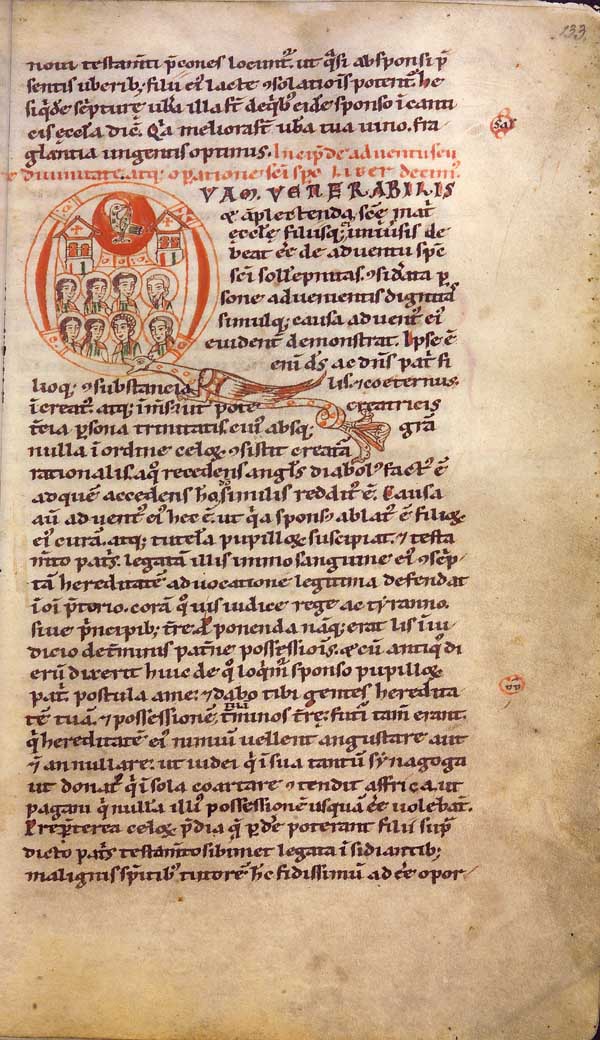 133
noui testam̄ti p̄cones locunt᷑. ut q̄si absponsi p̄
sentis uberib; filii ei᷒ lacte ꝯsolatiōis potent᷑. he
siq̇de sc̄pture uƀa illa st̄ deq̇b᷒ eidē sponso ī canti
cis ęccł̄a dic̄. Q̇a meliora st̄ uƀa tua uino. fra
glantia ungentis optimis. Incip̄ de aduentu
diuinitate. atq; opatione sc̄i sp̄c LIBER decim᷒.
QVAM VENERABILIS
& āplectenda sc̄ē mat̄
ęccłę filiisq; uniūsis de
beat eē de aduentu sp̄c
sc̄i soll̄ēpnitas. ꝯsid̄ata p̱
sone aduenientis dignitas
simulq; causa aduent᷒ ei᷒
euident̄ demonstrat. Ipse ē
enī d̄s ac dn̄s pat̄ fi
lioq; ꝯsubstancialis. & coeternus.
īcreat᷒. atq; īms̄: ut pote creatricis
t̄cia p̱sona trinitatis. cui᷒ absq; gr̄a
nulla ī ordine celoꝝ ꝯsistit creatā
rationalis. aq̇ recedens angł̄s diabol᷒ fact᷒ ē
ad quē accedens hō similis reddit᷒ ē. Causa
aū aduent᷒ ei᷒ hec ē. ut q̇a spons᷒ ablat᷒ ē filioꝝ
ei᷒ curā. atq; tutelā pupilloꝝ suscipiat. & testa
m̄to pat̄s. legatam illis immo sanguine ei᷒ ꝯsc̄p
tā hereditatē aduocatione legitima defendat
ī oī p̄torio. corā q̊uis iudice rege ac tyranno.
siue p̄ncipib; tr̄e. ponenda nāq; erat lis ī iu
dicio de t̄minis pat̄ne possessiōis. & cū antiq᷒ di
erū dixerit huic de q̊ loq̄m᷑ sponso pupilloꝝ
pat̄. postula a me: & dabo tibi gentes heredita
tē tuā. & possessionē tuā t̄minos tr̄ę: futi tam̄ erant.
q̇ hereditatē ei᷒ nimiū uellent angustare aut
& annullare: ut iudei q̇ ī sua tantū synagoga
ut donat᷒ q̇ ī sola coartare ꝯtendit affrica. ut
pagani q̇ nullā illi᷒ possessionē usquā eē uolebāt.
Preptērea celoꝝ p̄dia q̇ p̱de poterant filii sup̄
dicto pat̄s testam̄to sibimet legata ī sidiantib;
malignis sp̄itib᷒ tutorē hc̄ fidissimū adeē opor